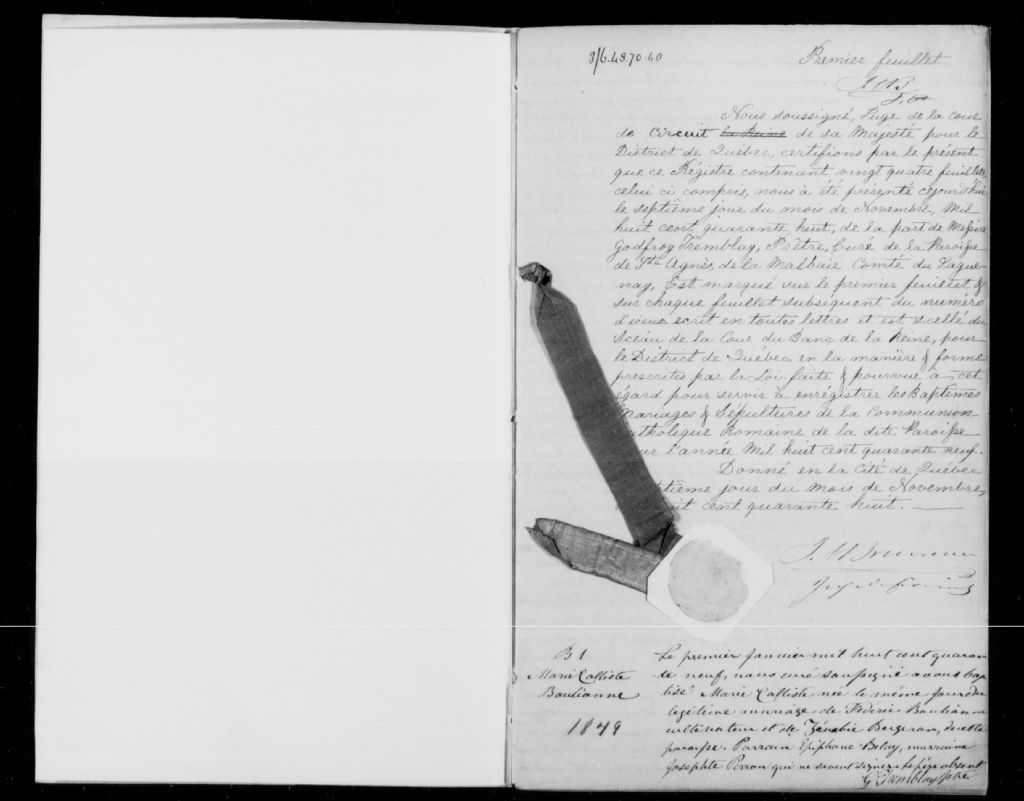 3/6.48.70.40
Premier feuillet
Nous soussigné, Juge de la cour
de Circuit la Reine de sa Majesté pour le
District de Québec, certifions par le présent
que ce Régistre contenant vingt quatre feuillets
celui ci compris, nous à été présenté cejourd'hui
le septième jour du mois de Novembre, Mil
huit cent quarante huit, de la part de Messire
Godfroy Tremblay, Prêtre, Curé de la Paroisse
de Ste Agnès de la Malbaie Comté du Sague-
nay, Est marqué sur le premier feuillet &
sur chaque feuillet subséquent du numéro
d'iceux écrit en toutes lettres et est scellé du
Sceau de la Cour du Banc de la Reine, pour
le District de Québec, en la manière & forme
prescrites par la Loi faite & pourvue à cet
égard pour servir à enrégistrer les Baptêmes
Mariages & Sépultures de la Communion
atholique Romaine de la dite Paroisse
ur l'année Mil huit cent quarante neuf.
Donné en la Cité de Québec
ptième jour du mois de Novembre,
uit cent quarante huit.
B 1
Marie Calliste
Boulianne
1849
Le premier Janvier mil huit cent quaran
te neuf, nous curé soussigné avons bap
tisé Marie Calliste née le même jour du
légitime mariage de Fédéric Boulianne
cultivateur et de Zénobie Bergeron, de cette
paroisse. Parrain Epiphane Belay, marraine
Josephte Perron qui ne savent signer. Le père absent
G. Tremblay Ptre